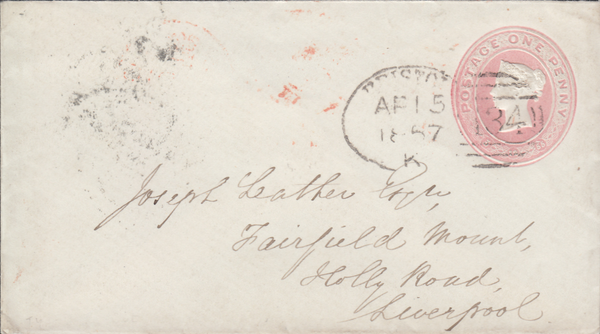 POSTAGE ONE PENNY
BRISTOL
AP 15
1857
K
134
Joseph Leather Esqr,
Fairfield Mount,
Holly Road,
Liverpool